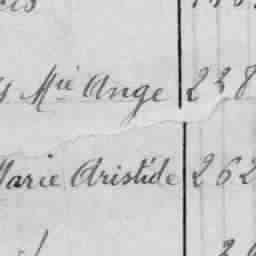 Mie Ange 238
Marie Aristide 262